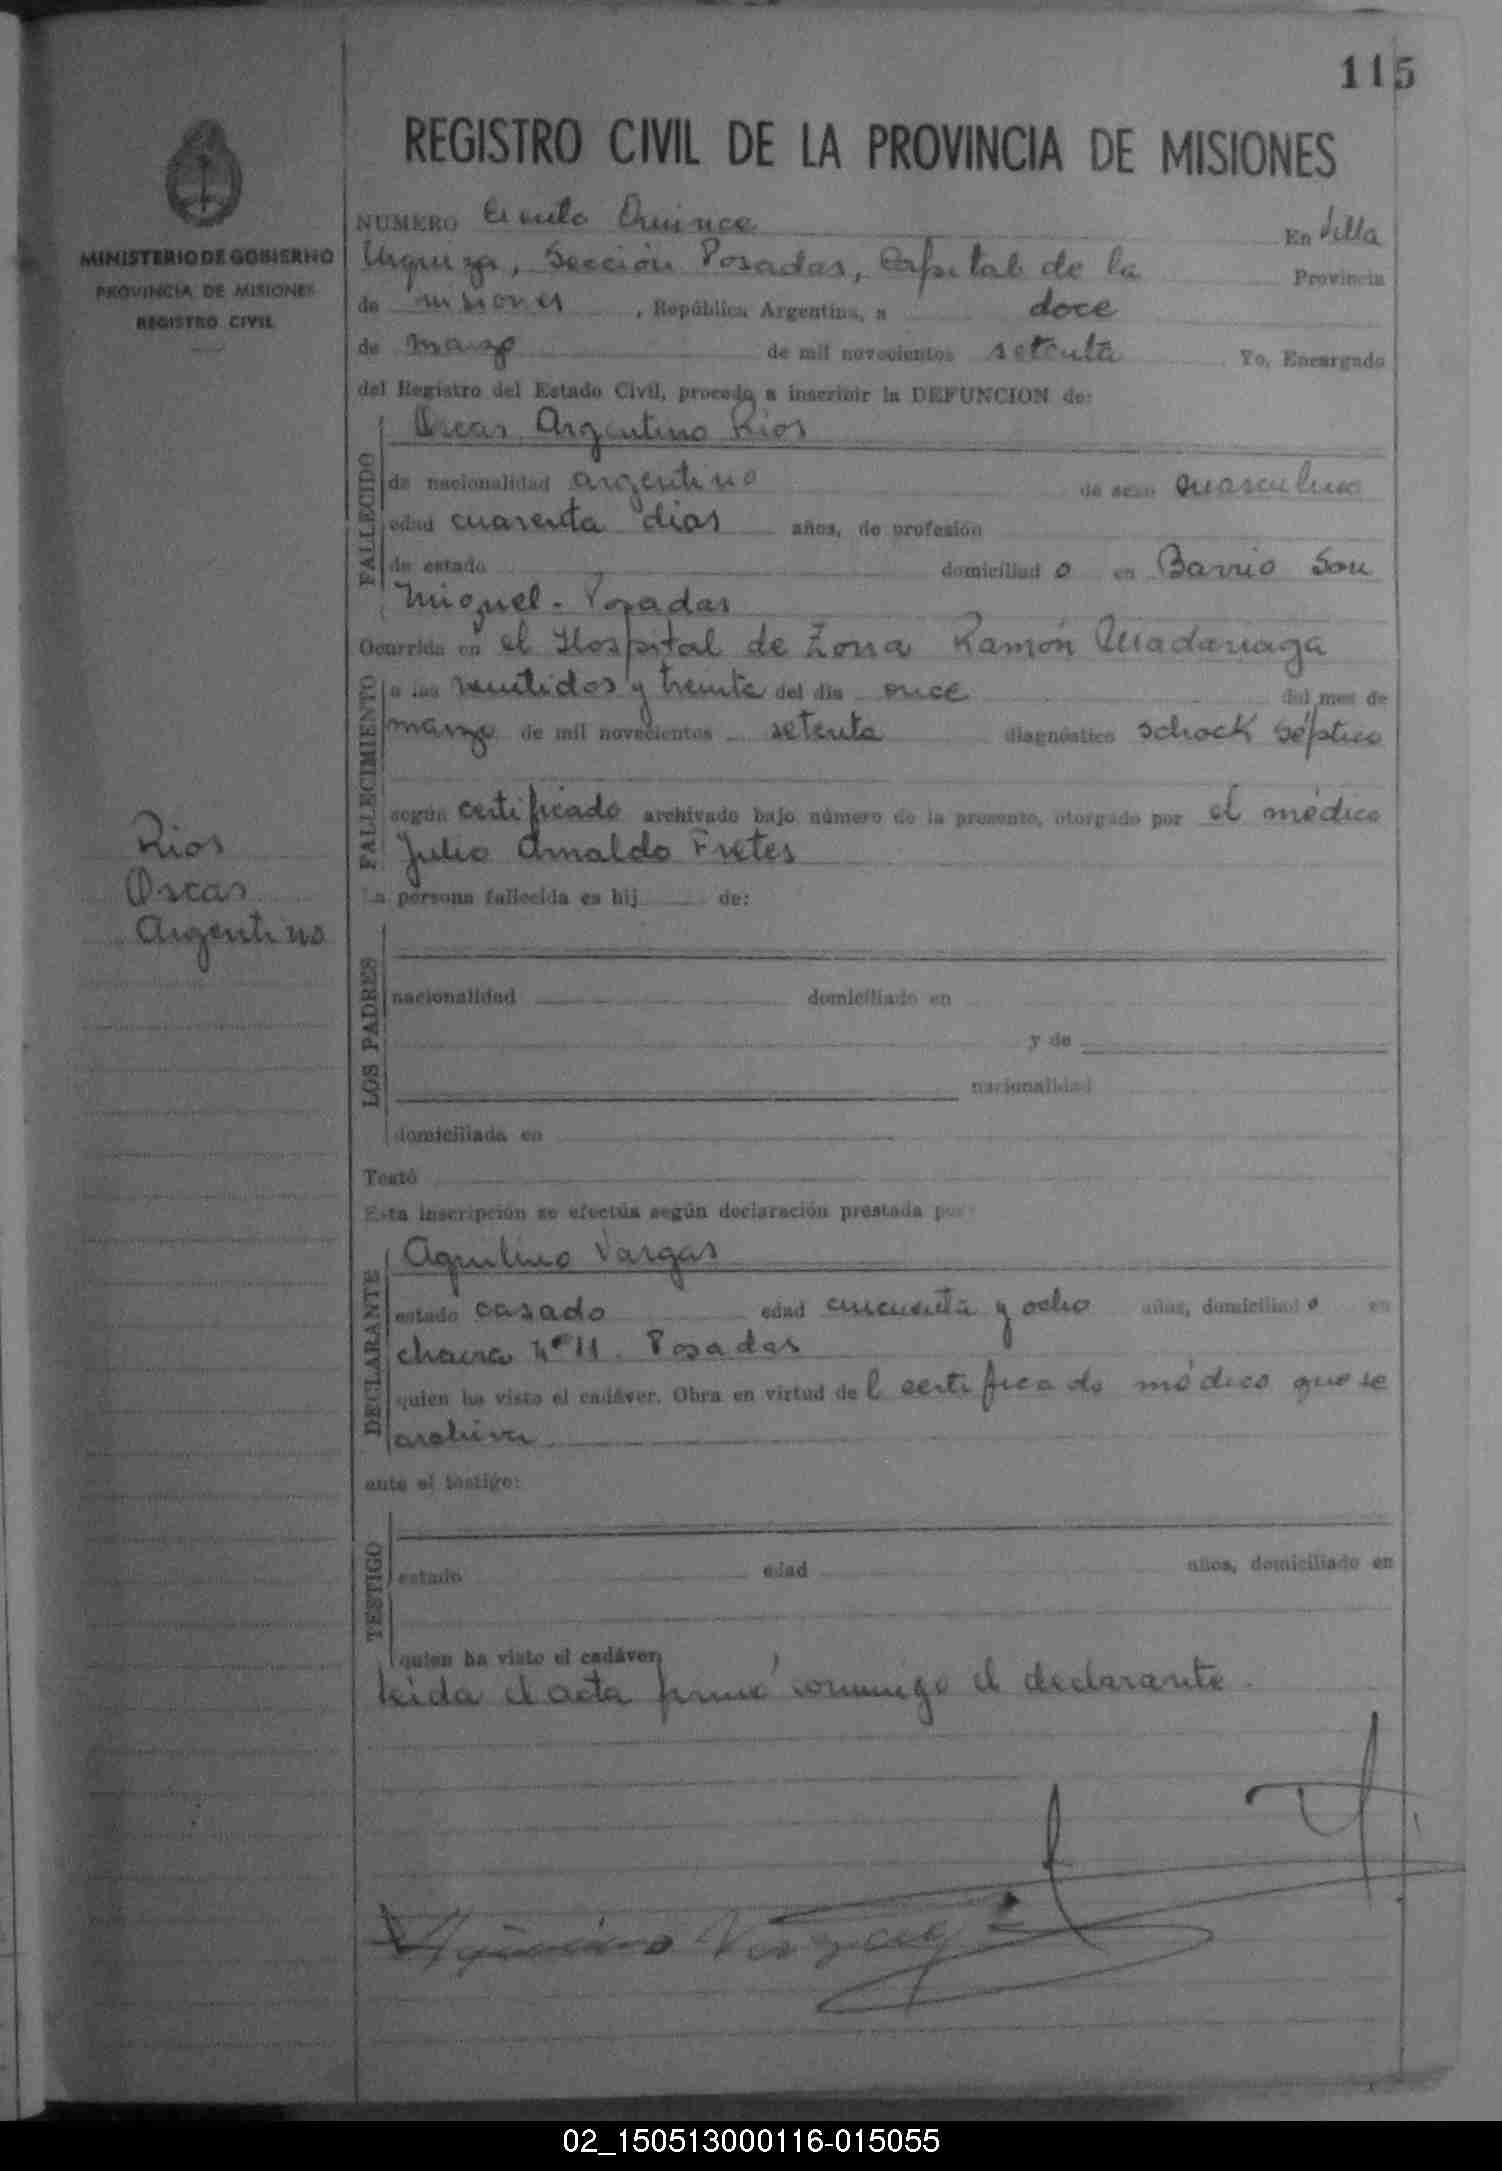 115
REGISTRO CIVIL DE LA PROVINCIA DE MISIONES
MINISTERIO DE GOBIERNO
PROVINCIA DE MISIONES
REGISTRO CIVIL
NUMERO Ciento Quince En Villa
Urquiza, Sección Posadas, Capital de la Provincia
de misiones, República Argentina, a doce
de marzo de mil novecientos setenta Yo, Encargado
del Registro del Estado Civil, procedo a inscribir la DEFUNCION de:
FALLECIDO
Oscar Argentino Rios
de nacionalidad argentino de sexo masculino
edad cuarenta dias años, de profesión
de estado domiciliad o en Barrio San
Miguel - Posadas
Ocurrida en el Hospital de Zona Ramón Madariaga
FALLECIMIENTO
a las veintidos y treinta del dia once del mes de
marzo de mil novecientos setenta diagnóstico schock séptico
según certificado archivado bajo número de la presente, otorgado por el médico
Julio Arnaldo Fretes
Rios
Oscar
Argentino
La persona fallecida es hij de:
LOS PADRES
nacionalidad domiciliado en
y de
nacionalidad
domiciliada en
Testó
Esta inscripción se efectúa según declaración prestada por:
DECLARANTE
Aquilino Vargas
estado casado edad cincuenta y ocho años, domiciliad o en
chacra Nº 11. Posadas
quien ha visto el cadáver. Obra en virtud de l certificado médico que se
archiva
ante el testigo:
TESTIGO
estado edad años, domiciliado en
quien ha visto el cadáver,
leida el acta firmó conmigo el declarante.
Aquilino Vargas
02_150513000116-015055